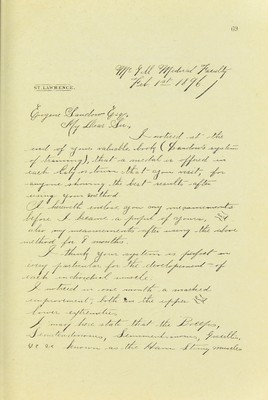 Mc Gill Medical Faculty
Feb 1st 1896
ST LAWRENCE.
Eugene Sandow Esqr.
My Dear Sir,
I noticed at the
end of your valuable book (Sandow's system
of training), that a medal is offered in
each city or town that you visit, for
anyone showing the best results after
using your method.
I herewith enclose you my measurements
before I became a pupil of yours. and
also my measurements after using the above
method for 8 months.
I think your system is perfect in
every particular for the development of
each individual muscle.
I noticed in one month a marked
improvement, both in the upper and
lower extremities.
I may here state that the Biceps,
Semitendinosus, Semimembranosus, Gracillis,
&c &c known as the Ham String muscles